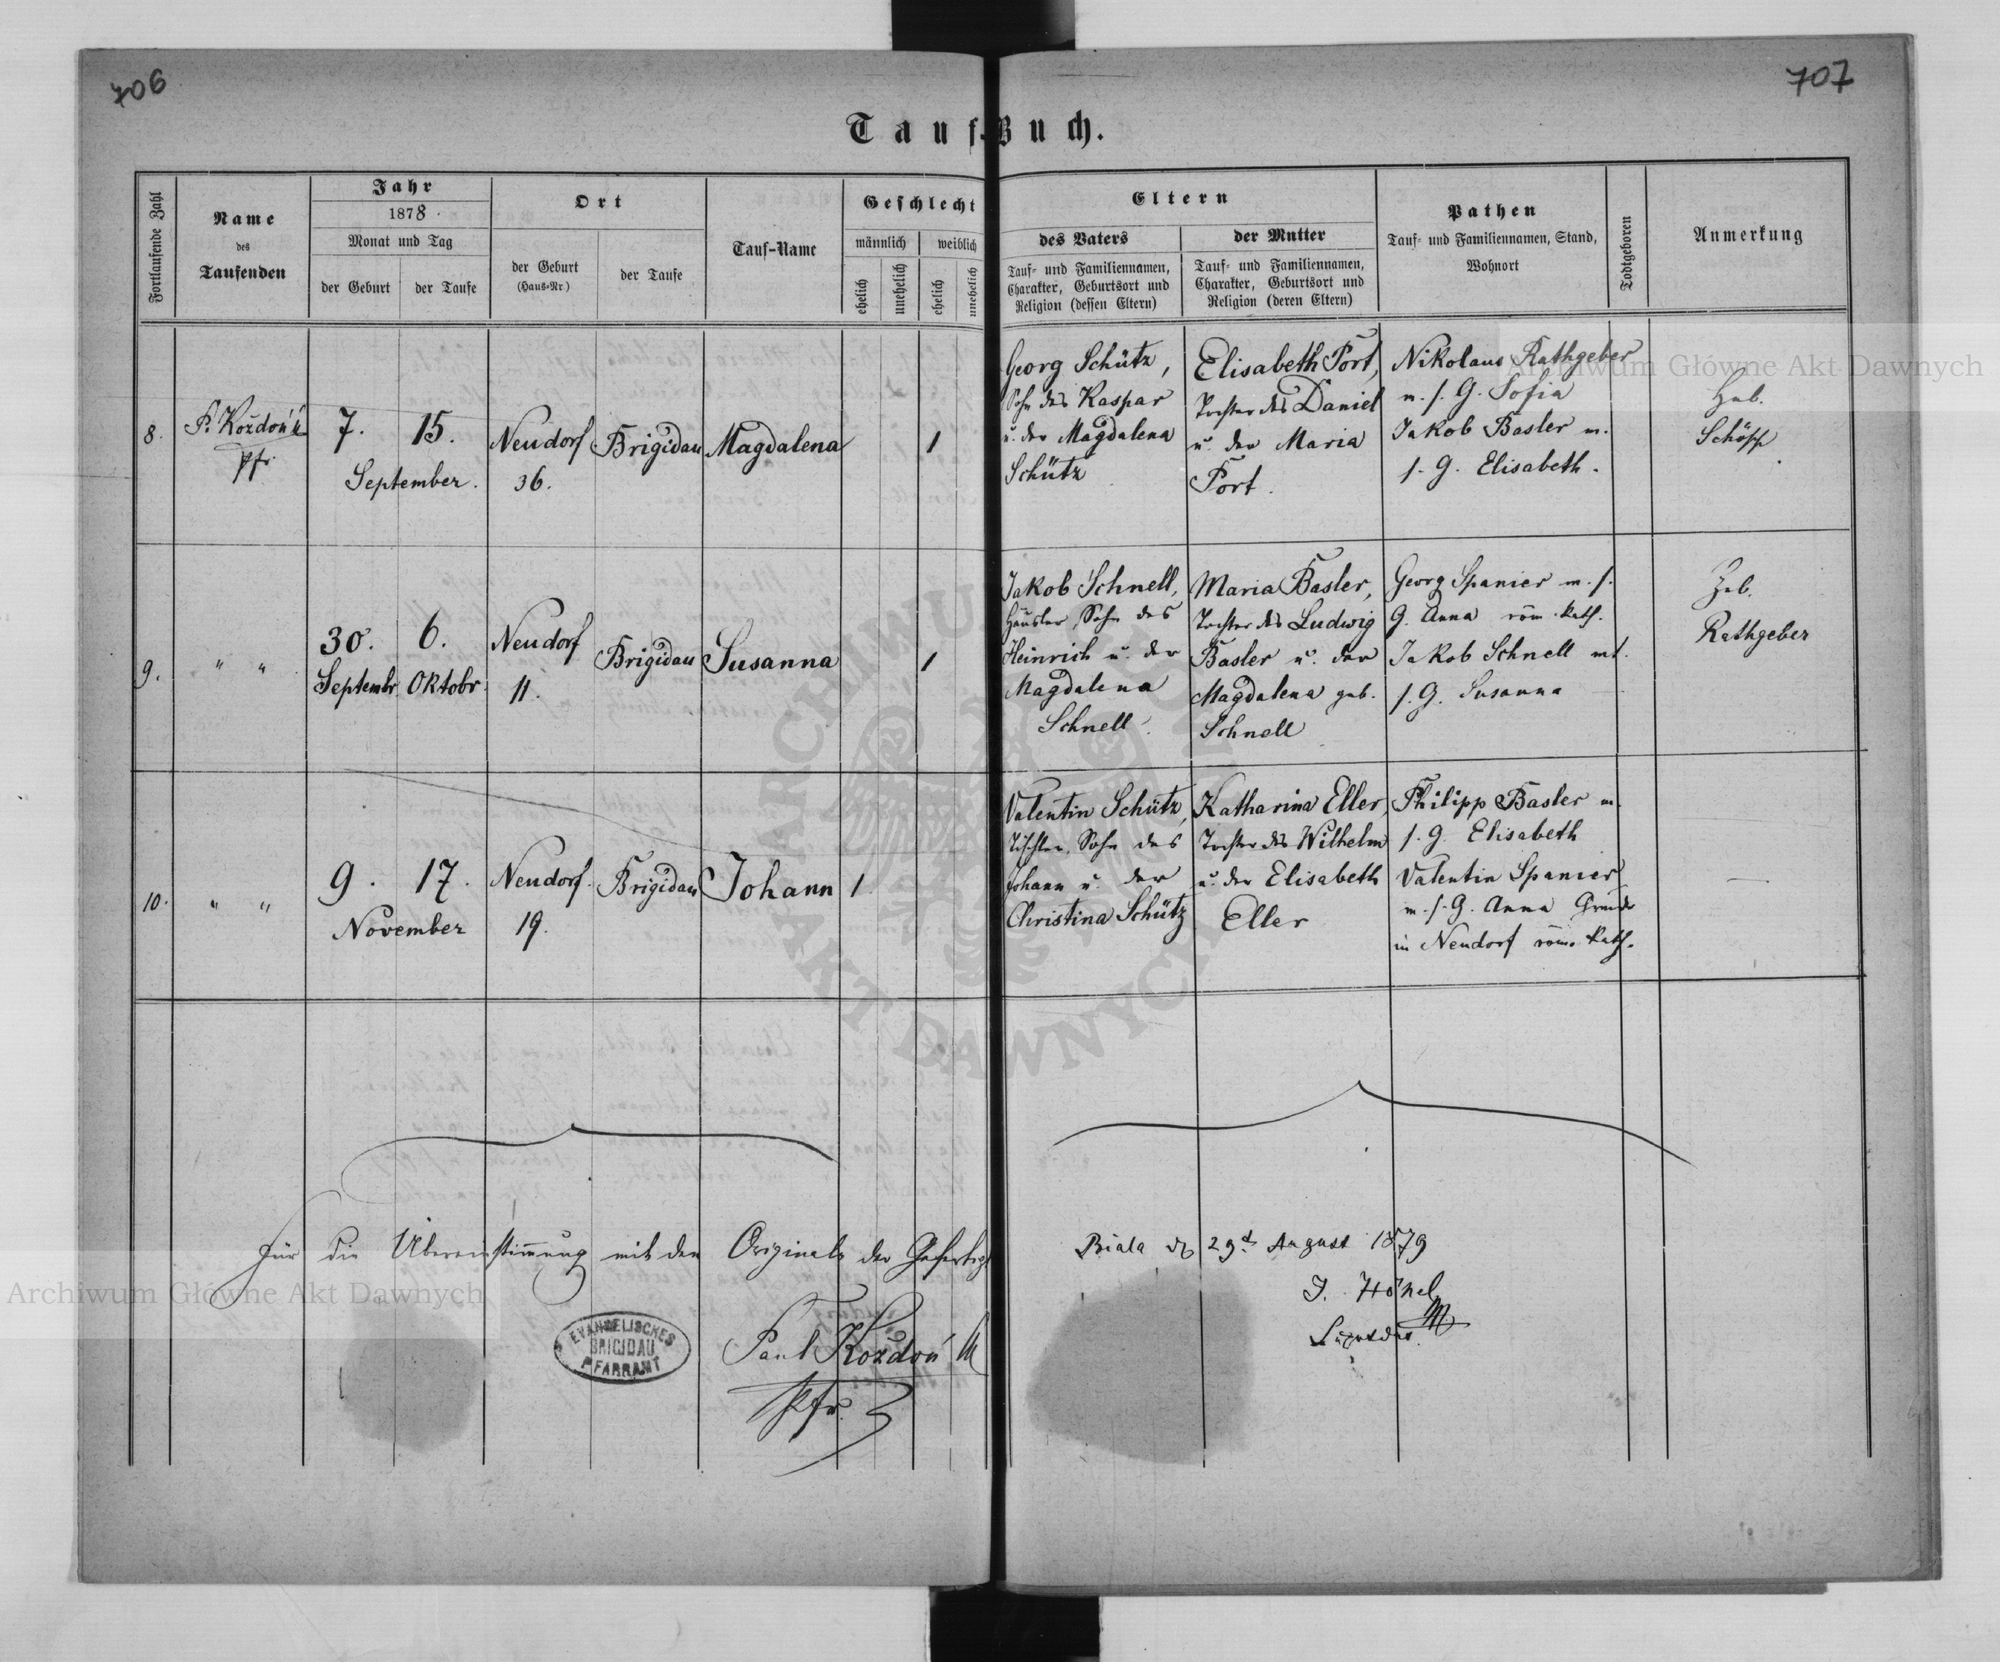 706
707
Tauf-Buch.
Fortlaufende Zahl
Name
des
Taufenden
Jahr
1878.
Monat und Tag
der Geburt
der Taufe
Ort
der Geburt
(Haus-Nr)
der Taufe
Tauf-Name
Geschlecht
männlich
weiblich
ehelich
unehelich
ehelich
unehelich
Eltern
des Vaters
Tauf- und Familiennamen,
Charakter, Geburtsort und
Religion (dessen Eltern)
der Mutter
Tauf- und Familiennamen,
Charakter, Geburtsort und
Religion (deren Eltern)
Pathen
Tauf- und Familiennamen, Stand,
Wohnort
Todtgeboren
Anmerkung
8.
P. Koždoń
Pfr.
7.
15.
September.
Neudorf
36.
Brigidau
Magdalena
1
Georg Schütz,
Sohn des Kaspar
u. der Magdalena
Schütz
Elisabeth Port,
Tochter des Daniel
u. der Maria
Port.
Nikolaus Rathgeber
m. s. G. Sofia
Jakob Basler m.
s. G. Elisabeth.
Heb.
Schöpf
9.
" "
30.
Septembr
6.
Oktobr.
Neudorf
11.
Brigidau
Susanna
1
Jakob Schnell,
Häusler, Sohn des
Heinrich u. der
Magdalena
Schnell.
Maria Basler,
Tochter des Ludwig
Basler u. der
Magdalena geb.
Schnell
Georg Spanier m. s.
G. Anna röm. kath.
Jakob Schnell mt.
s. G. Susanna
Heb.
Rathgeber
10.
" "
9.
17.
November
Neudorf.
19.
Brigidau
Johann
1
Valentin Schütz,
Tischler, Sohn des
Johann u. der
Christina Schütz
Katharina Eller,
Tochter des Wilhelm
u. der Elisabeth
Eller
Philipp Basler m.
s. G. Elisabeth
Valentin Spanier
m. s. G. Anna
in Neudorf röm. kath.
—
Für die Übereinstimmung mit dem Originale der Gefertigte
EVANGELISCHES
BRIGIDAU
PFARRAMT
Paul Koždoń
Pfr.
Biala 29t August 1879
J. Hönel
Archiwum Główne Akt Dawnych
Archiwum Główne Akt Dawnych
ARCHIWUM
AKT DAWNYCH